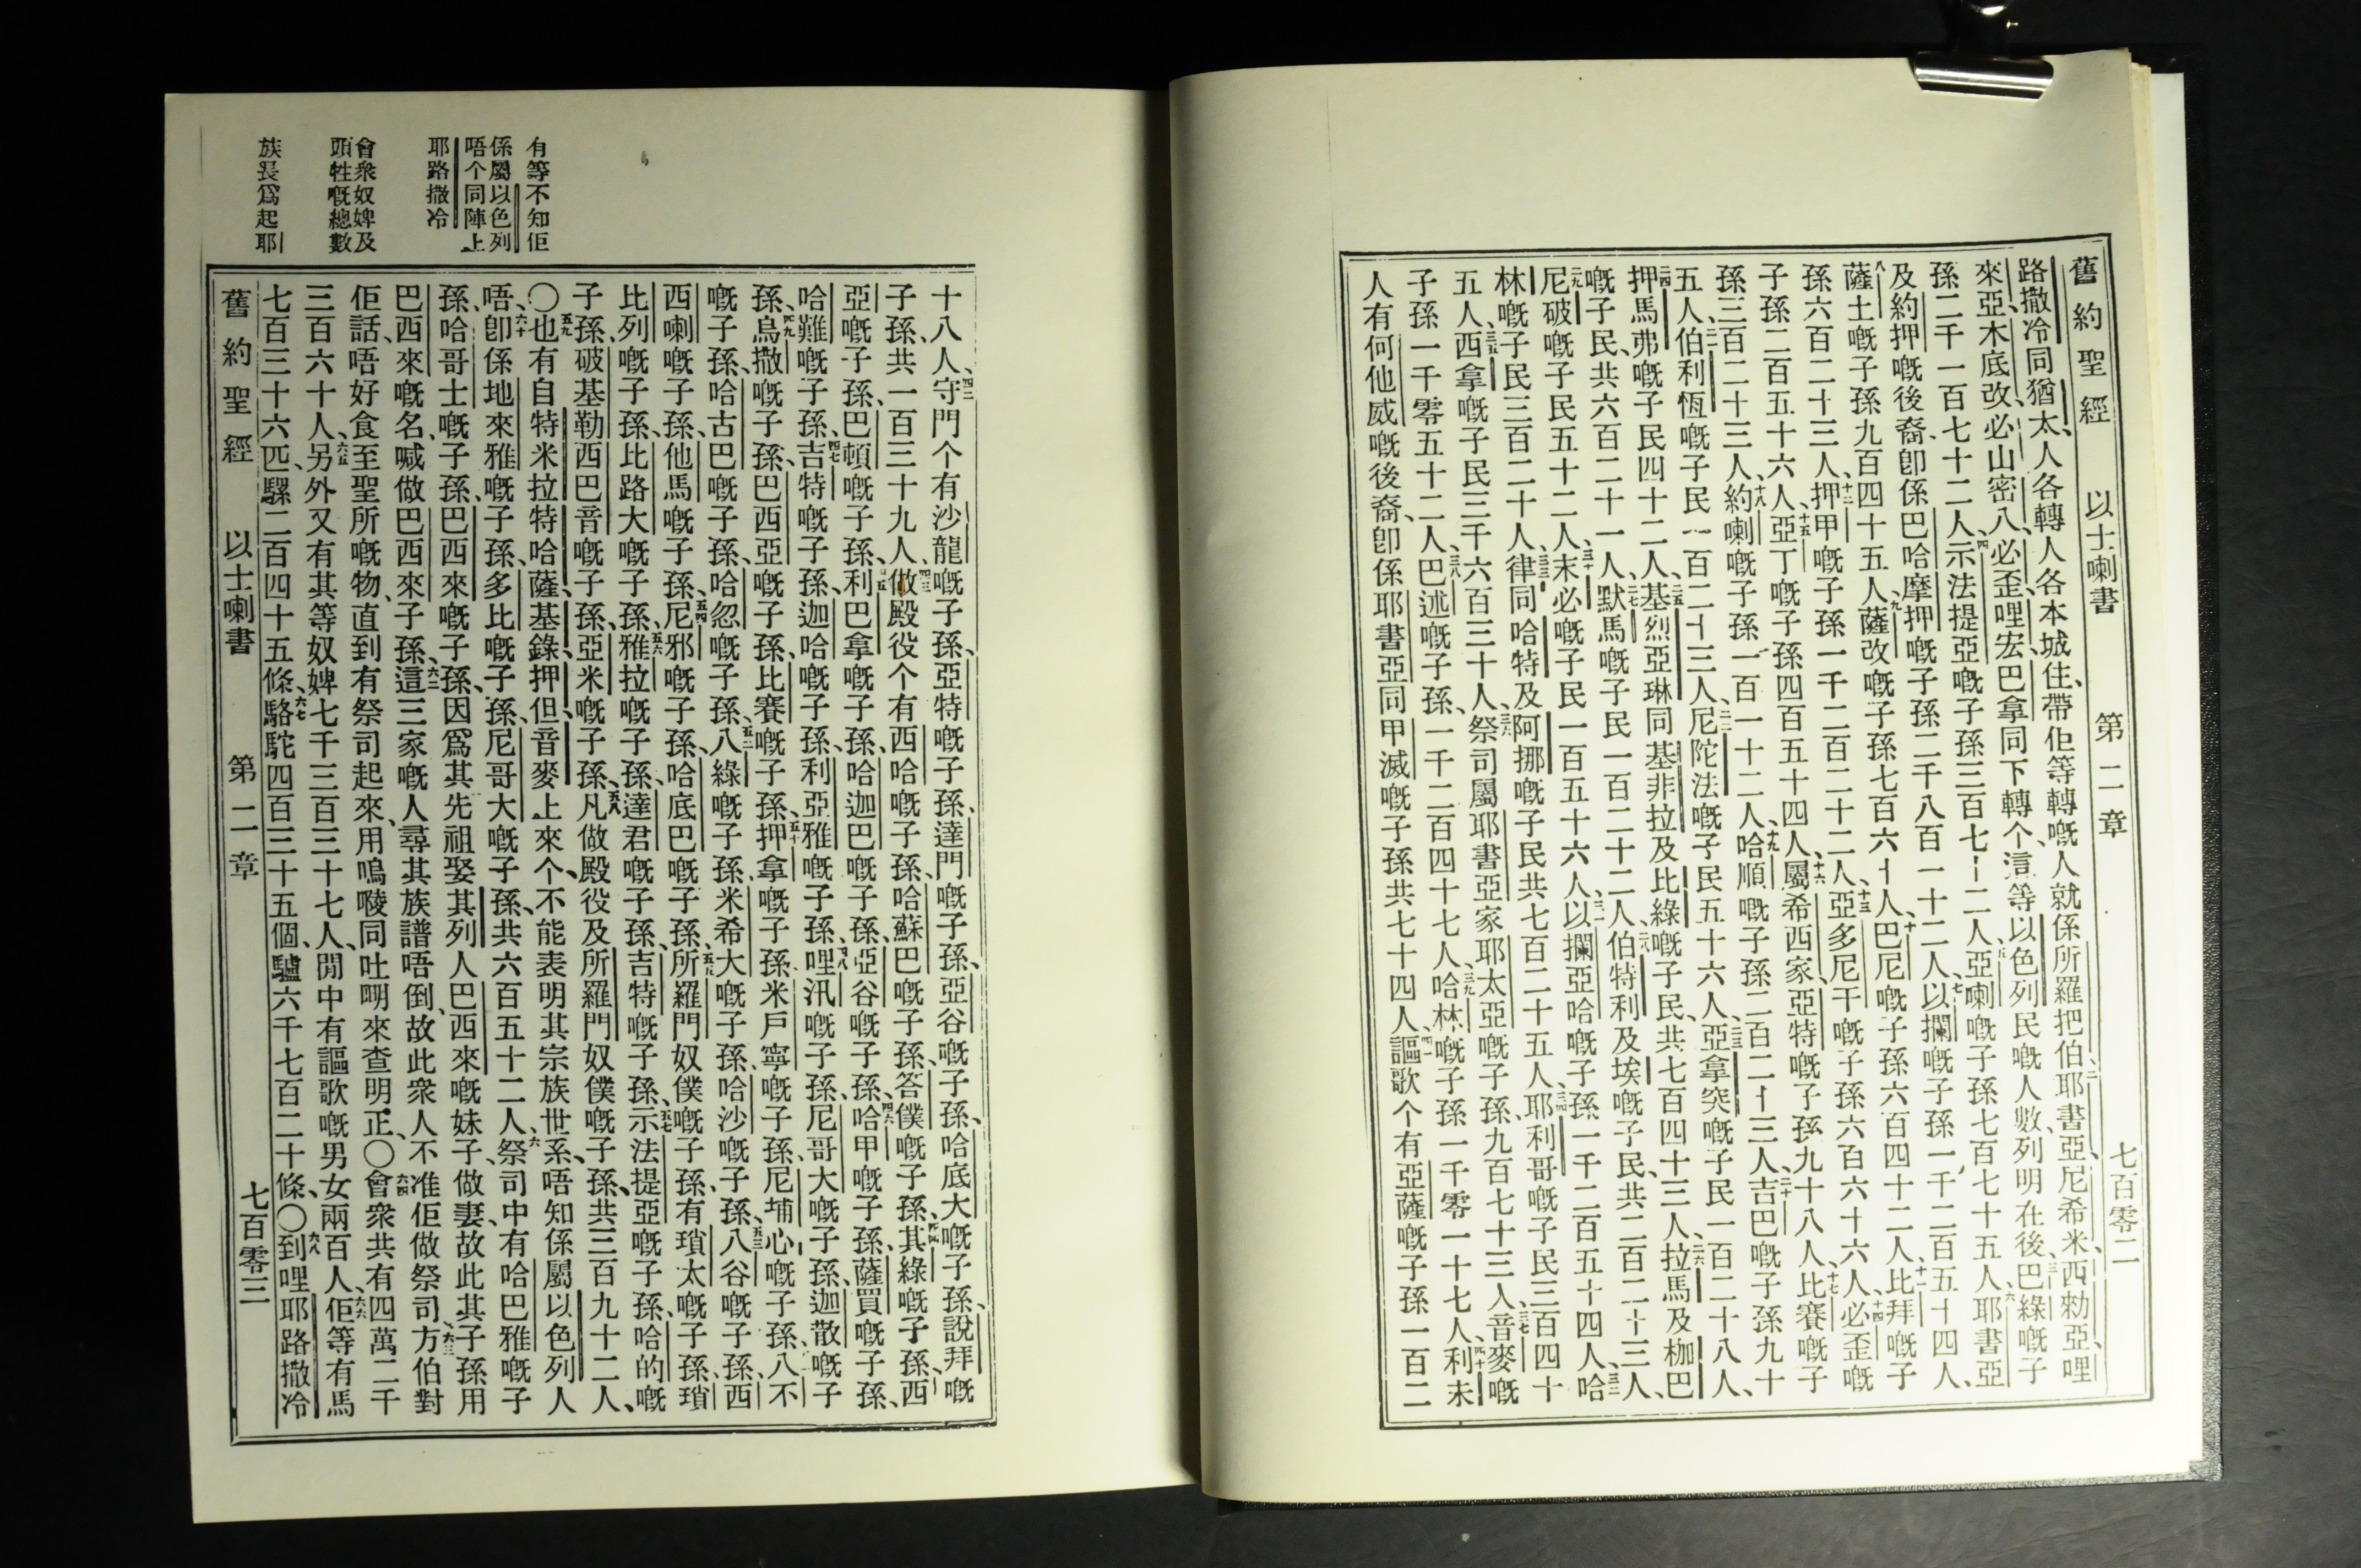 舊約聖經 以士喇書 第二章 七百零二
路撒冷同猶太、人各轉人各本城住、帶佢等轉嘅人就係所羅把伯、耶書亞、尼希米、西勑亞、哩
來亞、木底改、必山、密八、必歪、哩宏、巴拿、同下轉个、這等以色列民嘅人數、列明在後、巴綠嘅子
孫二千一百七十二人、示法提亞嘅子孫三百七十二人、亞喇嘅子孫七百七十五人、耶書亞
及約押嘅後裔、卽係巴哈摩押嘅子孫二千八百一十二人、以攔嘅子孫一千二百五十四人、
薩土嘅子孫九百四十五人、薩改嘅子孫七百六十人、巴尼嘅子孫六百四十二人、比拜嘅子
孫六百二十三人、押甲嘅子孫一千二百二十二人、亞多尼干嘅子孫六百六十六人、必歪嘅
子孫二百五十六人、亞丁嘅子孫四百五十四人、屬希西家、亞特嘅子孫九十八人、比賽嘅子
孫三百二十三人、約喇嘅子孫一百一十二人、哈順嘅子孫二百二十三人、吉巴嘅子孫九十
五人、伯利恆嘅子民一百二十三人、尼陀法嘅子民五十六人、亞拿突嘅子民一百二十八人、
押馬弗嘅子民四十二人、基烈亞琳同基非拉及比綠嘅子民、共七百四十三人、拉馬及枷巴
嘅子民、共六百二十一人、默馬嘅子民一百二十二人、伯特利及埃嘅子民、共二百二十三人、
尼破嘅子民五十二人、末必嘅子民一百五十六人、以攔亞哈嘅子孫一千二百五十四人、哈
林嘅子民三百二十人、律同哈特及阿挪嘅子民共七百二十五人、耶利哥嘅子民三百四十
五人、西拿嘅子民三千六百三十人、祭司屬耶書亞家耶太亞嘅子孫、九百七十三人、音麥嘅
子孫一千零五十二人、巴述嘅子孫、一千二百四十七人、哈林嘅子孫一千零一十七人、利未
人有何他威嘅後裔、卽係耶書亞同甲滅嘅子孫共七十四人、謳歌个有亞薩嘅子孫一百二
有等不知佢
係屬以色列
唔个同陣上
耶路撒冷
會衆奴婢及
頭牲嘅總數
族長爲起耶
十八人、守門个有沙龍嘅子孫、亞特嘅子孫、達門嘅子孫、亞谷嘅子孫、哈底大嘅子孫、說拜嘅
子孫、共一百三十九人、做殿役个有西哈嘅子孫、哈蘇巴嘅子孫、答僕嘅子孫、其綠嘅子孫、西
亞嘅子孫、巴頓嘅子孫、利巴拿嘅子孫、哈迦巴嘅子孫、亞谷嘅子孫、哈甲嘅子孫、薩買嘅子孫、
哈難嘅子孫、吉特嘅子孫、迦哈嘅子孫、利亞雅嘅子孫、哩汛嘅子孫、尼哥大嘅子孫、迦散嘅子
孫、烏撒嘅子孫、巴西亞嘅子孫、比賽嘅子孫、押拿嘅子孫、米戶寧嘅子孫、尼埔心嘅子孫、八不
嘅子孫、哈古巴嘅子孫、哈忽嘅子孫、八綠嘅子孫、米希大嘅子孫、哈沙嘅子孫、八谷嘅子孫、西
西喇嘅子孫、他馬嘅子孫、尼邪嘅子孫、哈底巴嘅子孫、所羅門奴僕嘅子孫、有瑣太嘅子孫、瑣
比列嘅子孫、比路大嘅子孫、雅拉嘅子孫、達君嘅子孫、吉特嘅子孫、示法提亞嘅子孫、哈的嘅
子孫、破基勒西巴音嘅子孫、亞米嘅子孫、凡做殿役及所羅門奴僕嘅子孫、共三百九十二人、
〇也有自特米拉、特哈薩、基錄、押但、音麥上來个、不能表明其宗族世系、唔知係屬以色列人
唔、卽係地來雅嘅子孫、多比嘅子孫、尼哥大嘅子孫、共六百五十二人、祭司中有哈巴雅嘅子
孫、哈哥士嘅子孫、巴西來嘅子孫、因爲其先祖娶其列人巴西來嘅妹子、做妻、故此其子孫用
巴西來嘅名、喊做巴西來子孫、這三家嘅人、尋其族譜唔倒、故此衆人不准佢做祭司、方伯對
佢話、唔好食至聖所嘅物、直到有祭司起來、用嗚㖫同吐㖟來查明正、〇會衆共有四萬二千
三百六十人、另外又有其等奴婢七千三百三十七人、閒中有謳歌嘅男女兩百人、佢等有馬
七百三十六匹、騾二百四十五條、駱駝四百三十五個、驢六千七百二十條、〇到哩耶路撒冷
舊約聖經 以士喇書 第二章 七百零三